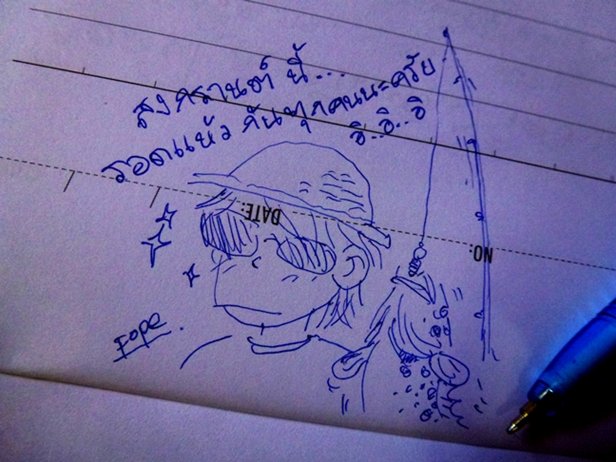 สงกรานต์ นี้...
รอดแห้ว กันทุกคนนะครัย
อิ..อิ..อิ
DATE:
NO.
Fope.